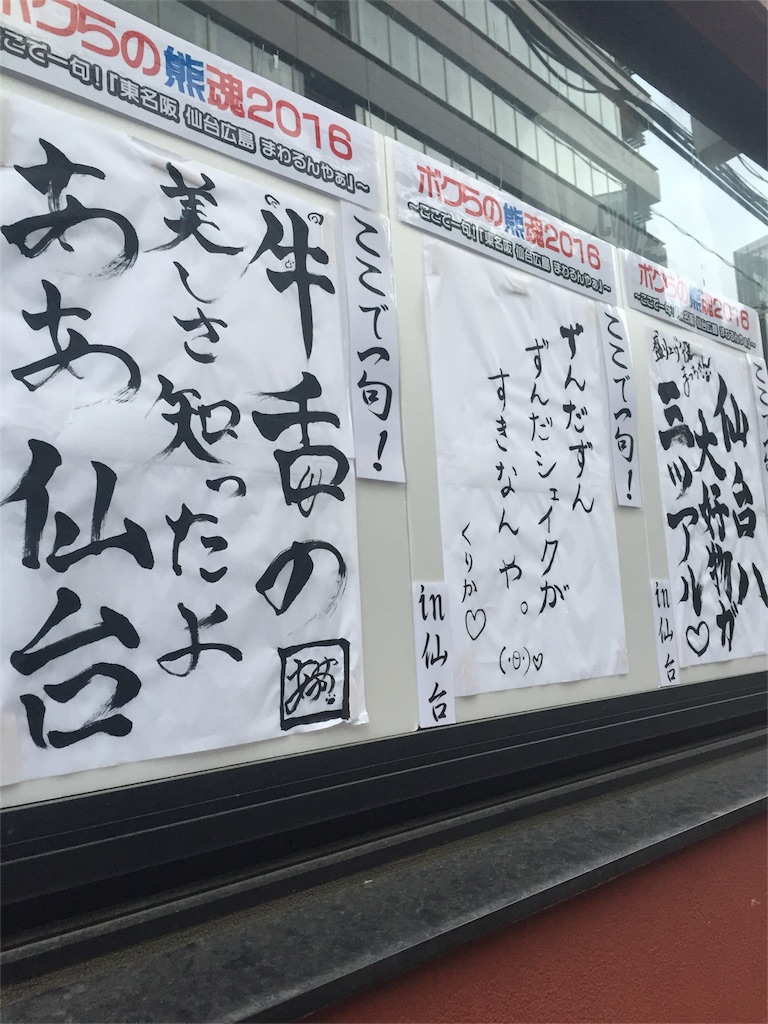 ボクらの熊魂2016
ここで一句!「東名阪 仙台広島 まわるんやぁ」~
ここで一句!
牛舌の
美しさ知ったよ
ああ仙台
ボクらの熊魂2016
~ここで一句!「東名阪 仙台広島 まわるんやぁ」~
ここで一句!
ずんだずん
ずんだシェイクが
すきなんや。
くりか♡
(・θ・)♡
in仙台
ボクらの熊魂2016
~ここで一句!「東名阪 仙台広島 まわるんやぁ」~
ここで一句
仙台ハ
大好物ガ
三ツアル♡
in仙台